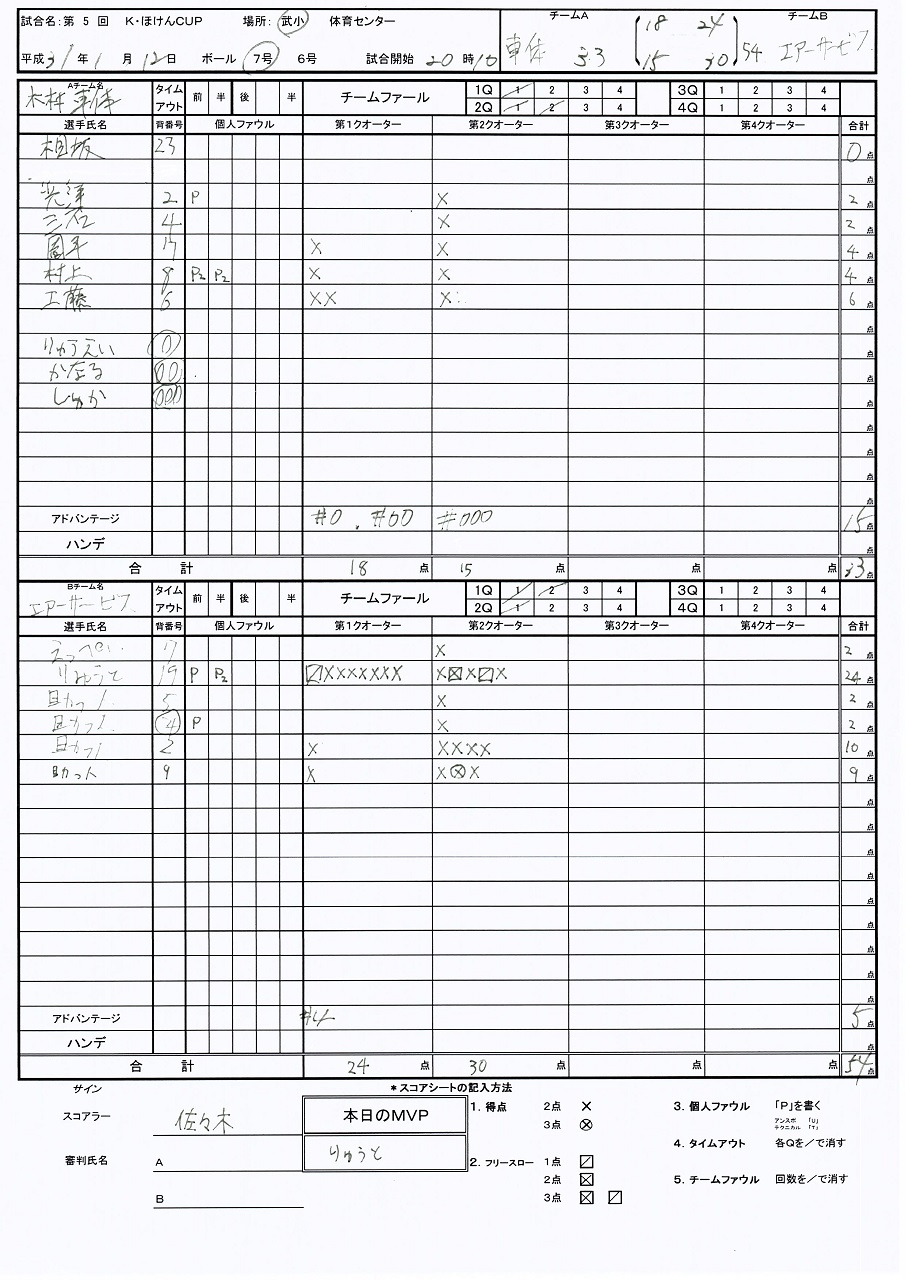 試合名:第 5 回 K・ほけんCUP 場所: 武小 体育センター
平成31年1月12日 ボール 7号 6号 試合開始 20時10
チームA チームB
車体 33 18 24 15 30 54 エアーサービス
Aチーム名 木村車体 タイムアウト 前 半 後 半 チームファール 1Q 1 2 3 4 3Q 1 2 3 4
2Q 1 2 3 4 4Q 1 2 3 4
選手氏名 背番号 個人ファウル 第1クオーター 第2クオーター 第3クオーター 第4クオーター 合計
相坂 23 0点
点
2 P X 2点
三石 4 X 2点
17 X X 4点
村上 8 P2 P2 X X 4点
工藤 6 XX X 6点
点
りゅうえい 0 点
かなる 00 点
しゅか 000 点
点
点
点
点
アドバンテージ #0 . #00 #000 15点
ハンデ 点
合 計 18 点 15 点 点 点 33点
Bチーム名 エアーサービス タイムアウト 前 半 後 半 チームファール 1Q 1 2 3 4 3Q 1 2 3 4
2Q 1 2 3 4 4Q 1 2 3 4
選手氏名 背番号 個人ファウル 第1クオーター 第2クオーター 第3クオーター 第4クオーター 合計
17 X 2点
りゅうと 19 P P2 〼XXXXXXX X⊠X〼X 24点
助っ人 5 X 2点
助っ人 4 P X 2点
助っ人 2 X XXXX 10点
助っ人 9 X X⊗X 9点
点
点
点
点
点
点
点
点
点
アドバンテージ #4 5点
ハンデ 点
合 計 24 点 30 点 点 点 54点
サイン
スコアラー 佐々木
審判氏名 A
B
本日のMVP
りゅうと
*スコアシートの記入方法
1. 得点 2点 ×
3点 ⊗
2. フリースロー 1点 〼
2点 ⊠
3点 ⊠ 〼
3. 個人ファウル 「P」を書く
アンスポ 「U」
テクニカル 「T」
4. タイムアウト 各Qを/で消す
5. チームファウル 回数を/で消す